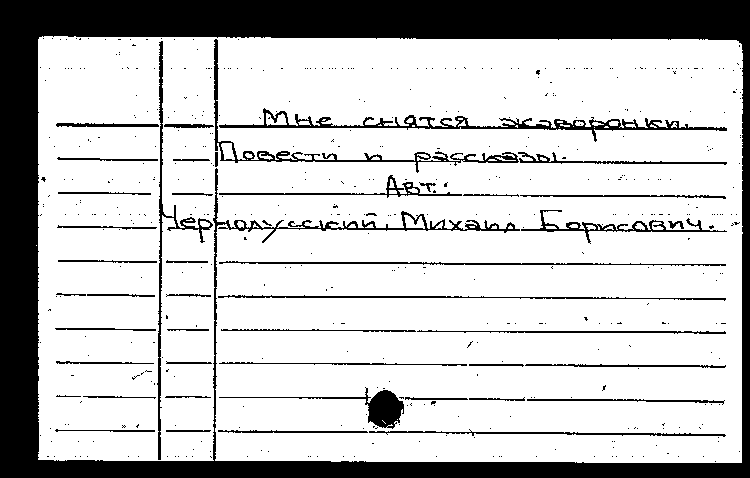 Мне снятся жаворонки.
Повести и рассказы.
Авт.:
Чернолусский, Михаил Борисович.